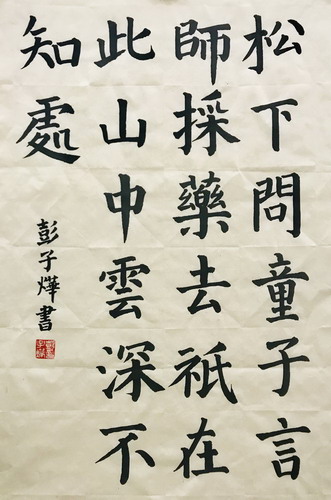 松下問童子言
師採藥去祇在
此山中雲深不
知處
彭子燁書